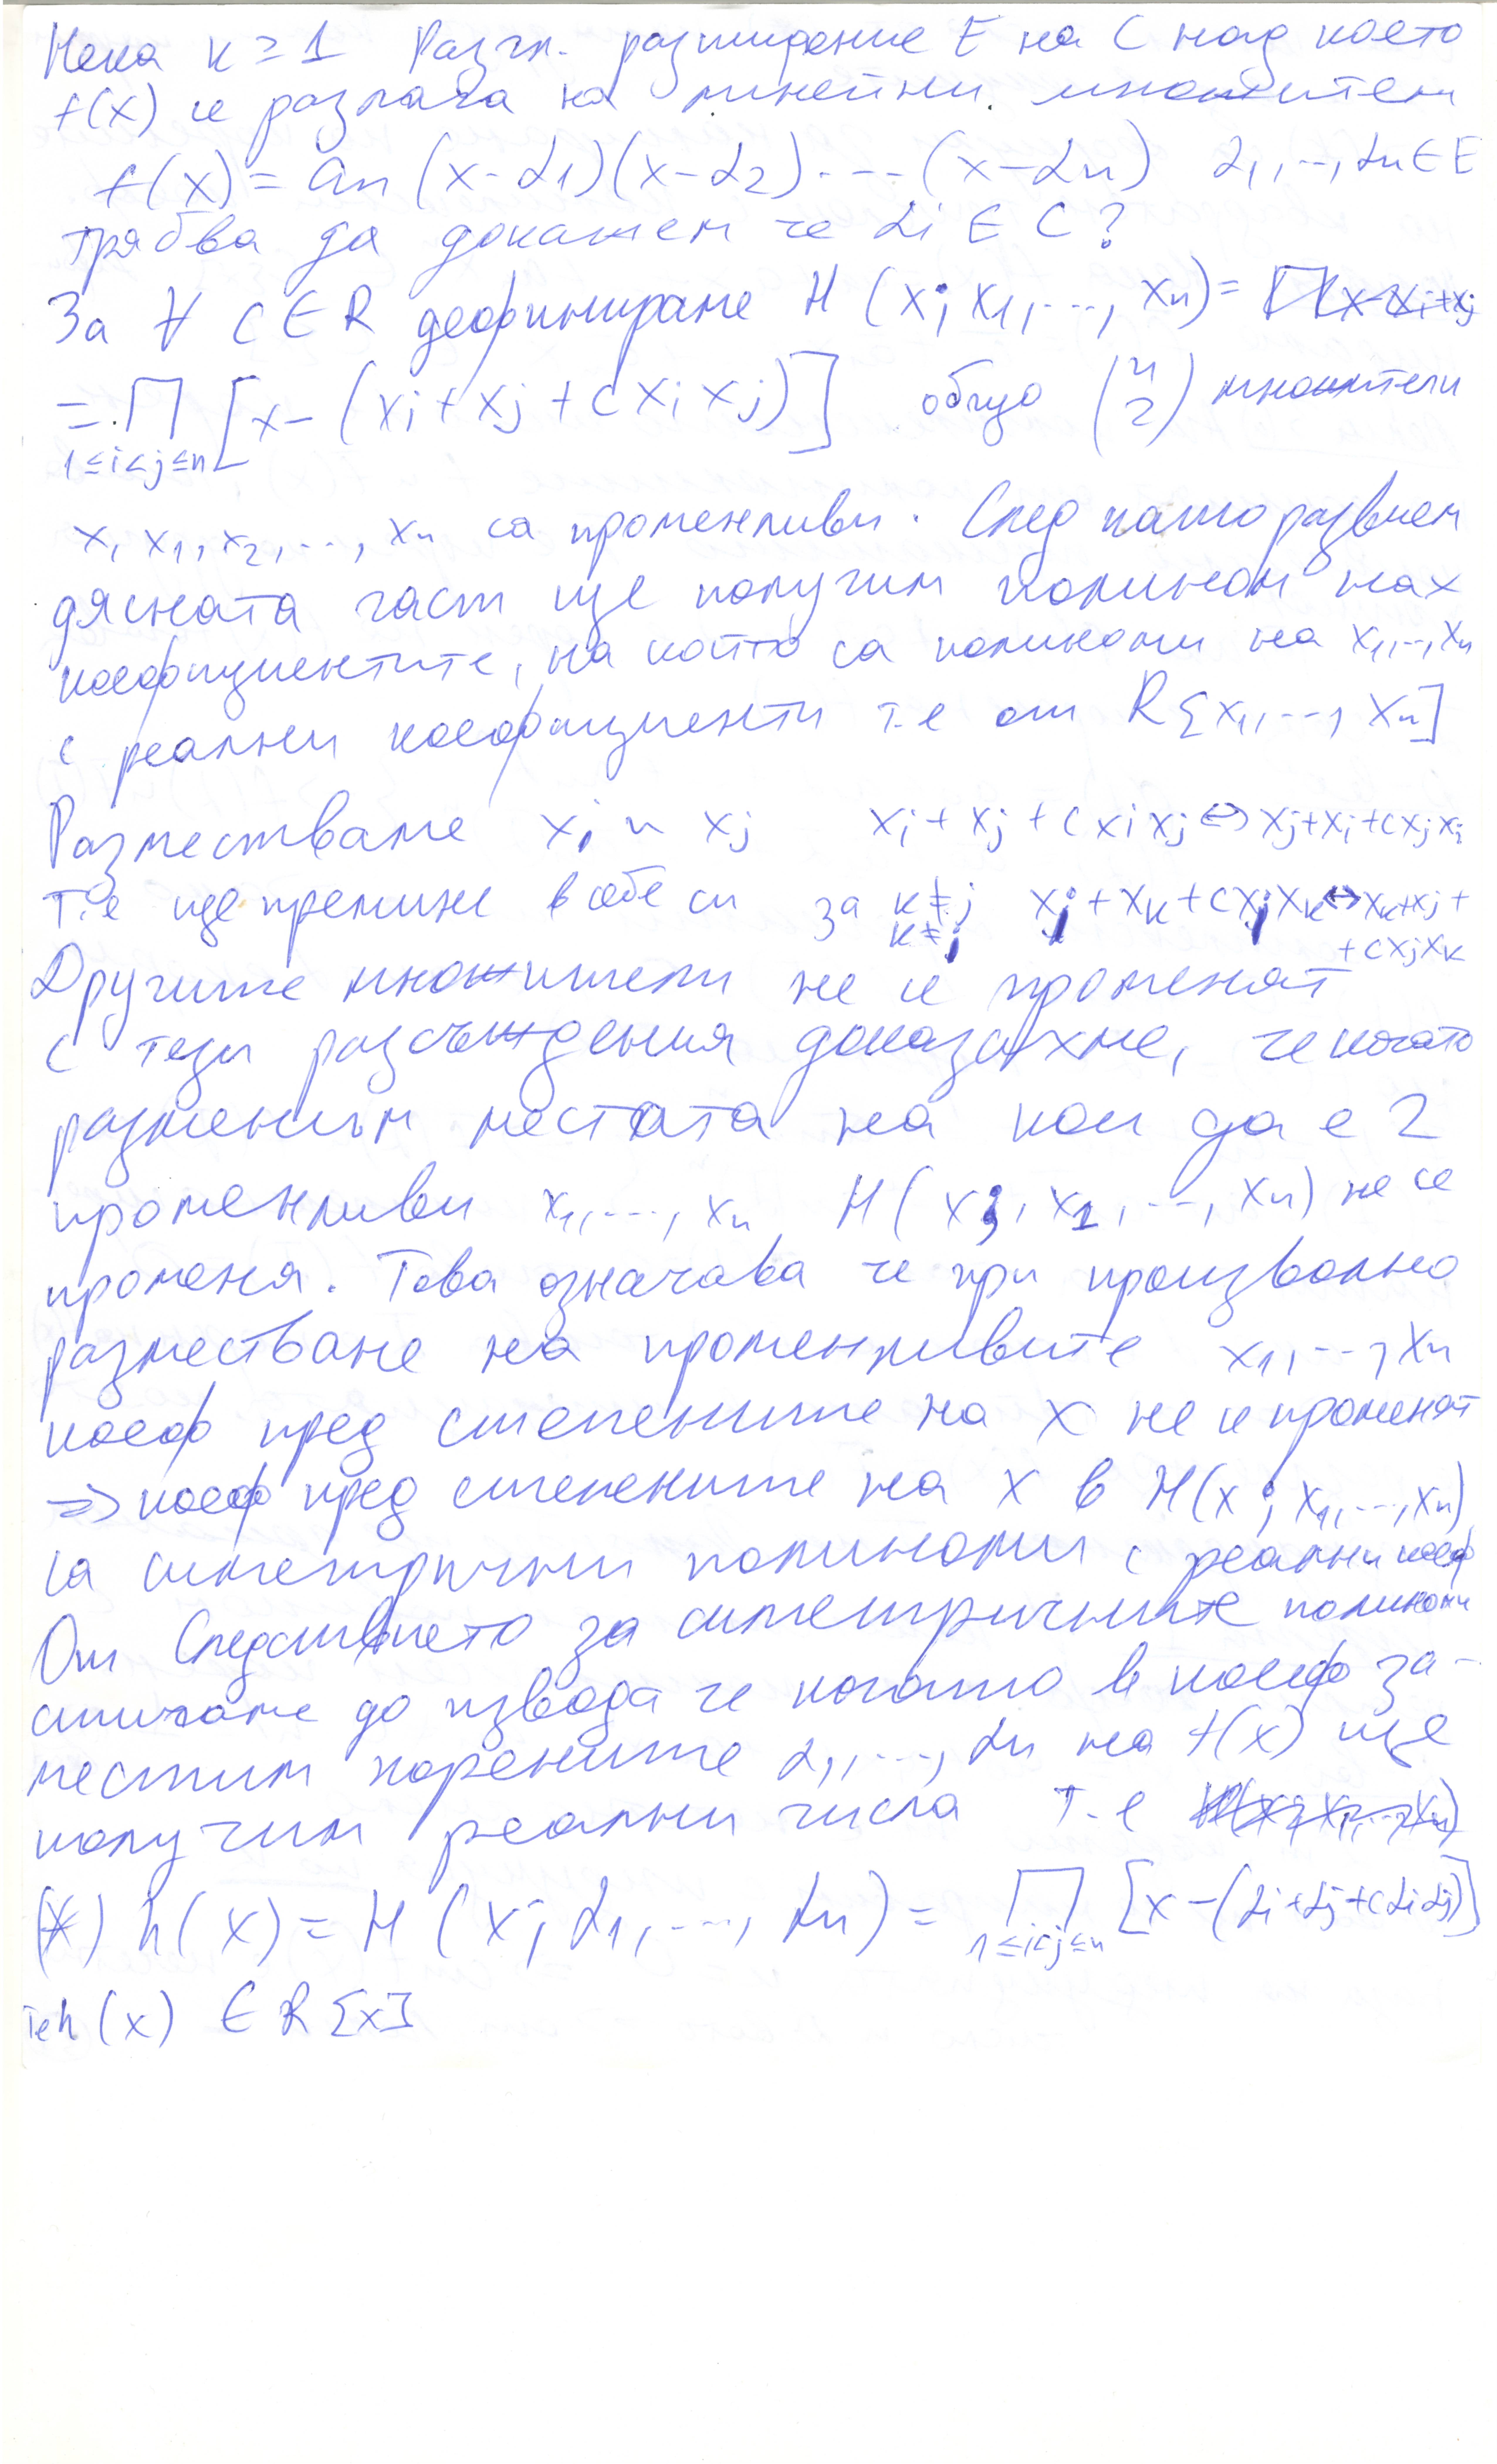 Нека k ≥ 1 Разгл. разширение E на C над което
f(x) се разлага на линейни множители
f(x) = an (x-α1)(x-α2)...(x-αn) α1,..,αn ∈ E
трябва да докажем че αi ∈ C?
За ∀ c ∈ R дефинираме H (x; x1,..., xn) =
= ∏ [x - (xi + xj + c xi xj)] общо (n 2) множители
1≤i<j≤n
x, x1, x2, ..., xn са променливи. След като развием
дясната част ще получим полином на x
коефициентите, на който са полиноми на x1,..,xn
с реални коефициенти т.е от R[x1,..., xn]
Разместваме xi и xj xi + xj + c xi xj ↔ xj+xi+cxj xi
т.е ще премине в себе си за k≠j xj + xk + cxj xk ↔ xk+xj +
k≠i + cxjxk
Другите множители не се променят
с тези разсъждения доказахме, че когато
разменим местата на кои да е 2
променливи x1,..., xn H( x; x1, ..., xn) не се
променя. Това означава че при произволно
разместване на променливите x1,..., xn
коеф пред степените на x не се променят
=> коеф пред степените на x в H(x; x1,...,xn)
са симетрични полиноми с реални коеф
От Следствието за симетричните полиноми
стигаме до извода че когато в коеф за-
местим корените α1,..., αn на f(x) ще
получим реални числа т.е
(*) h(x) = H (x; α1,..., αn) = ∏ [x - (αi+αj+cαiαj)]
1≤i<j≤n
те h(x) ∈ R[x]